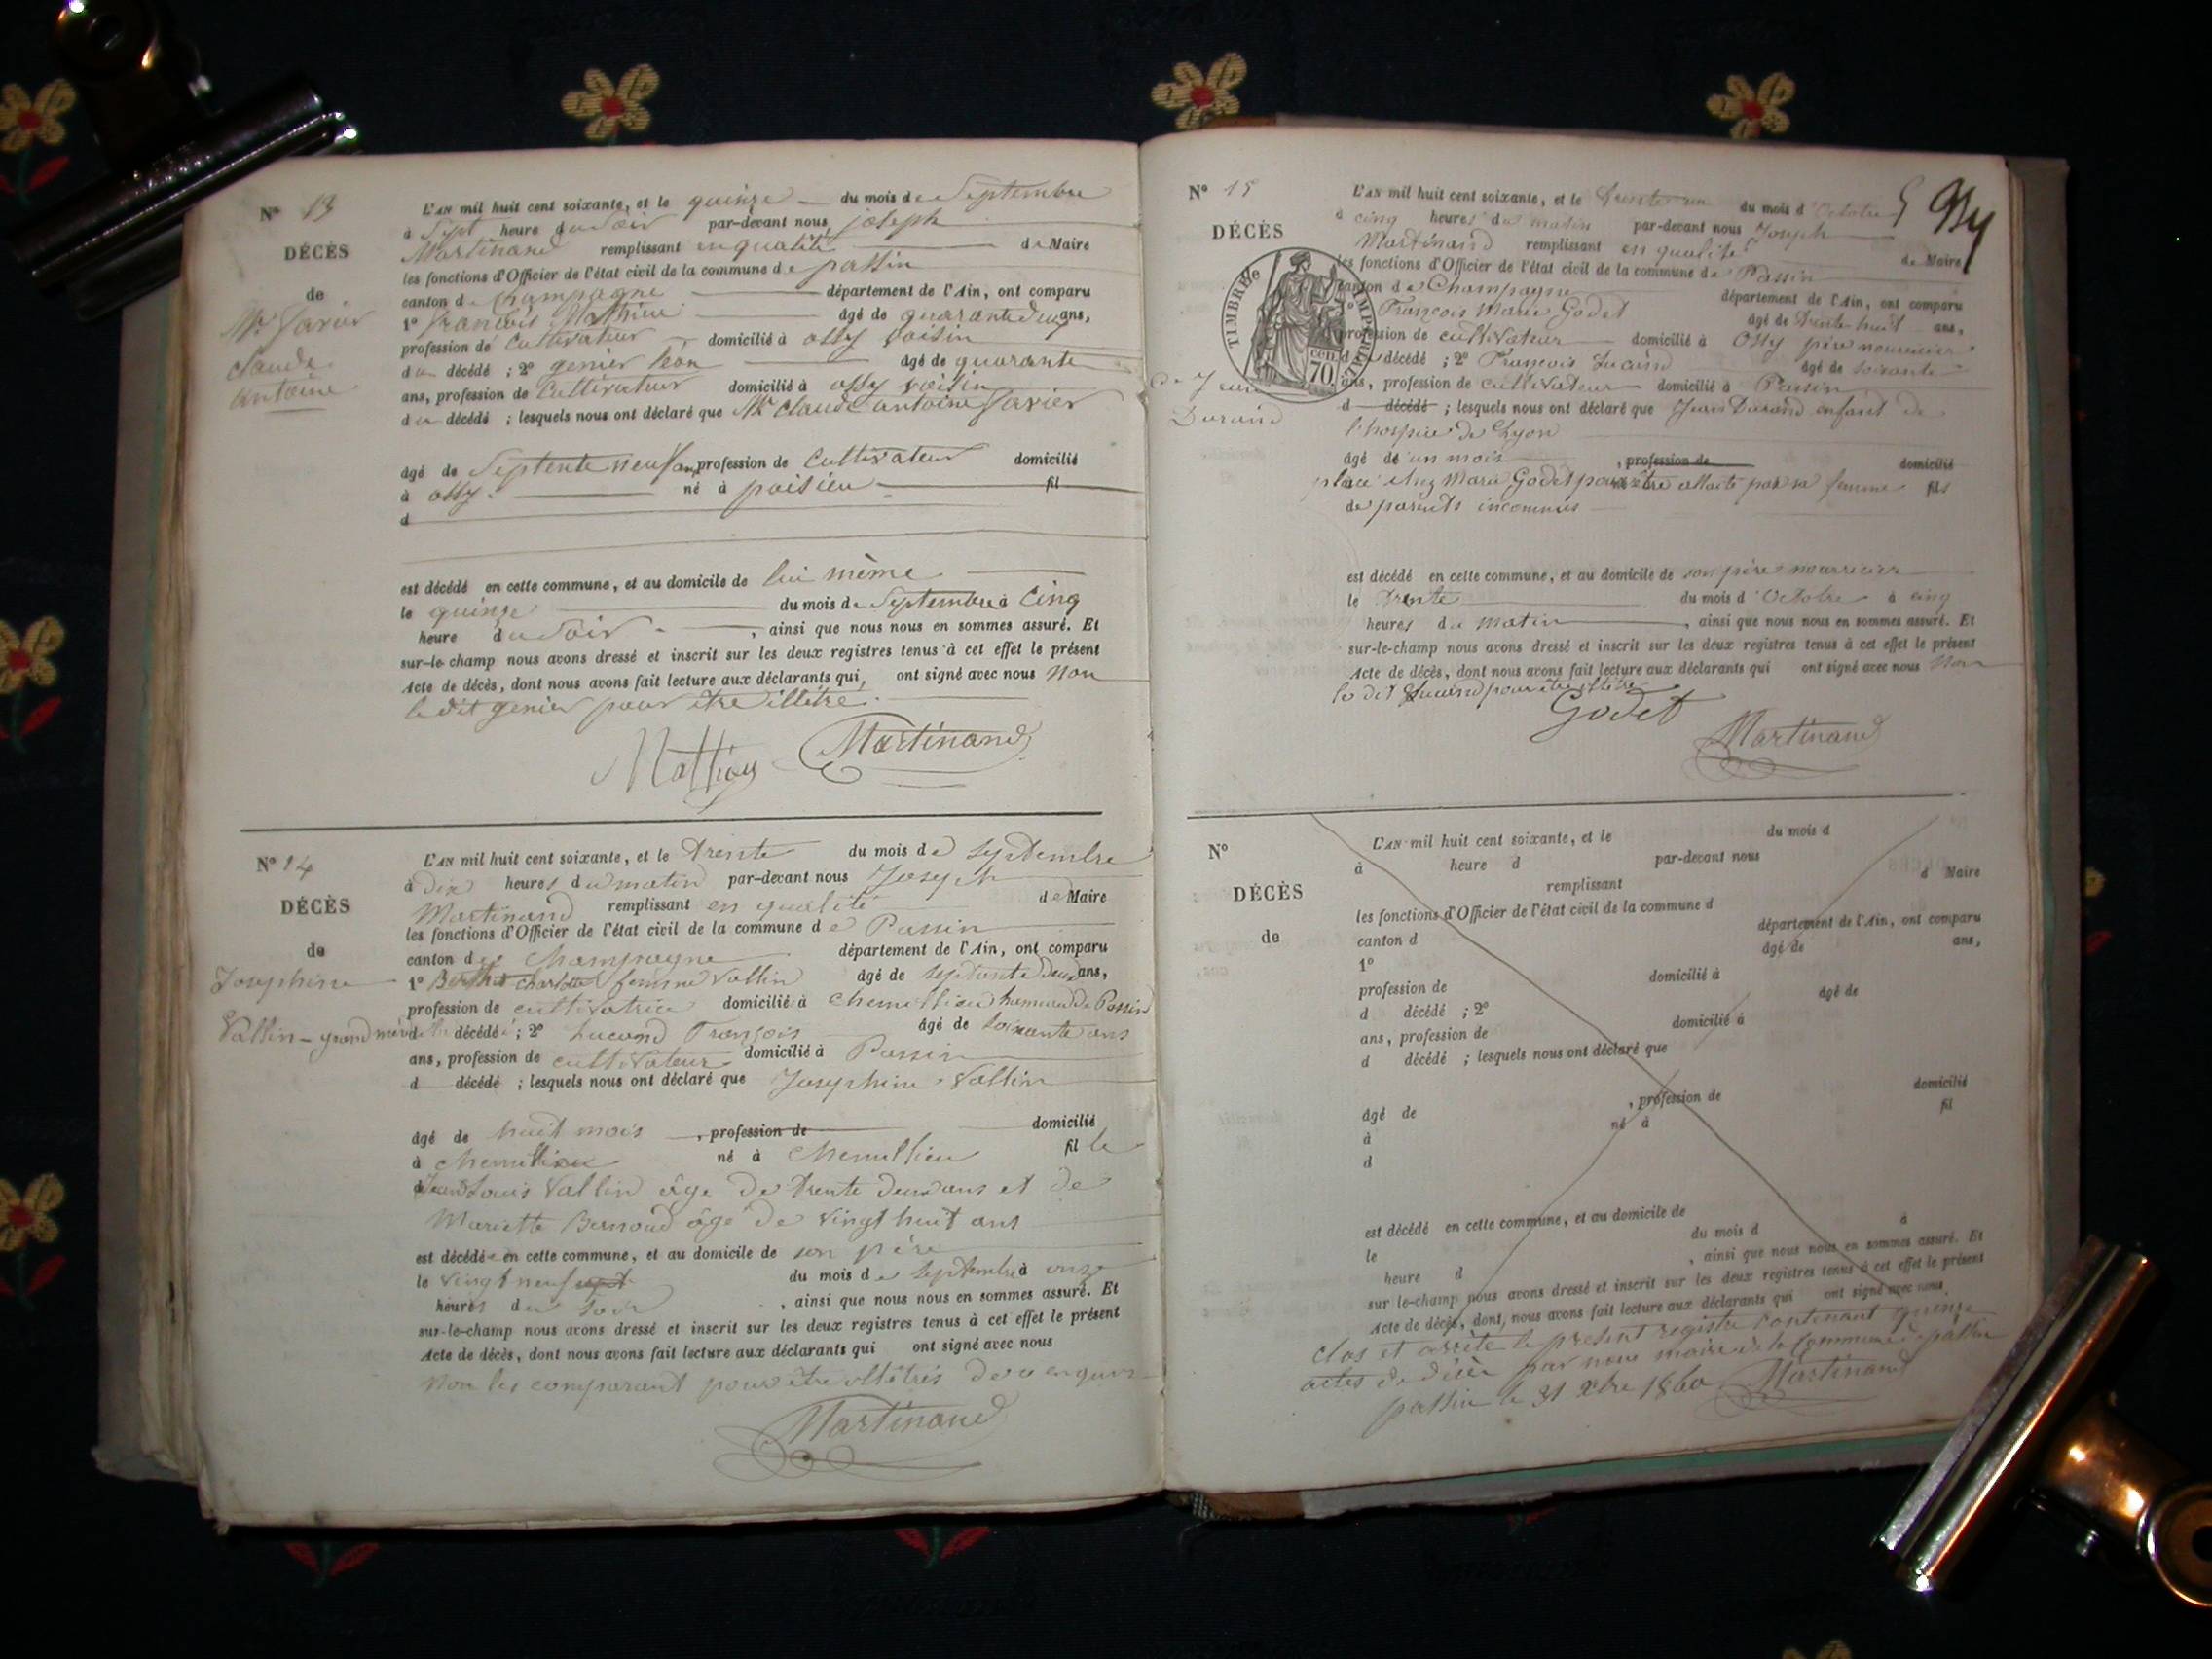 N° 13
DÉCÈS
de
Mr Savier
claude
antoine
L'AN mil huit cent soixante, et le quinze du mois de Septembre
à Sept heure du Soir par-devant nous joseph
Martinand remplissant en qualité de Maire
les fonctions d'Officier de l'état civil de la commune de passin
canton de Champagne département de l'Ain, ont comparu
1° françois Mathieu âgé de quarante deux ans,
profession de Cultivateur domicilié à ossy voisin
du décédé ; 2° genier léon âgé de quarante
ans, profession de Cultivateur domicilié à ossy voisin
du décédé ; lesquels nous ont déclaré que Mr claude antoine Savier
âgé de Septente neuf ans profession de Cultivateur domicilié
à ossy né à poisieu fil
d
est décédé en cette commune, et au domicile de lui même
le quinze du mois de Septembre à Cinq
heure du Soir, ainsi que nous nous en sommes assuré. Et
sur-le-champ nous avons dressé et inscrit sur les deux registres tenus à cet effet le présent
Acte de décès, dont nous avons fait lecture aux déclarants qui, ont signé avec nous Non
le dit genier pour être illétré.
Mathieu Martinand
N° 14
DÉCÈS
de
Josephine
Vallin - grand mère
L'AN mil huit cent soixante, et le trente du mois de septembre
à dix heures du matin par-devant nous Joseph
Martinand remplissant en qualité de Maire
les fonctions d'Officier de l'état civil de la commune de Passin
canton de Champagne département de l'Ain, ont comparu
1° charlotte femme Vallin âgé de septante deux ans,
profession de cultivatrice domicilié à chemillieu hameau de Passin
d décédé ; 2° Lucand François âgé de soixante ans
ans, profession de cultivateur domicilié à Passin
d décédé ; lesquels nous ont déclaré que Josephine Vallin
âgé de huit mois, profession de domicilié
à chemillieu né à Chemillieu fille
Jean Louis Vallin âge de trente deux ans et de
Mariette Bernoud âgé de vingt huit ans
est décédé en cette commune, et au domicile de son père
le vingt neuf sept du mois de septembre à onze
heures du soir, ainsi que nous nous en sommes assuré. Et
sur-le-champ nous avons dressé et inscrit sur les deux registres tenus à cet effet le présent
Acte de décès, dont nous avons fait lecture aux déclarants qui ont signé avec nous
Non les comparant pour être illétrés de ce enquis
Martinand
N° 15
DÉCÈS
TIMBRE IMPÉRIAL
70 cen
de Jean
Durand
L'AN mil huit cent soixante, et le trente un du mois d'Octobre
à cinq heures du matin par-devant nous Joseph
Martinand remplissant en qualité de Maire
les fonctions d'Officier de l'état civil de la commune de Passin
canton de Champagne département de l'Ain, ont comparu
1° François Marie Godet âgé de trente huit ans,
profession de cultivateur domicilié à Ossy père nourricier
d décédé ; 2° François Lucand âgé de soixante
ans, profession de cultivateur domicilié à Passin
d décédé ; lesquels nous ont déclaré que Jean Durand enfant de
l'hospice de Lyon
âgé de un mois, profession de domicilié
placé chez Marie Godet pour être allaité par sa femme fils
de parents inconnus
est décédé en cette commune, et au domicile de son père nourricier
le trente du mois d'Octobre à cinq
heures du matin, ainsi que nous nous en sommes assuré. Et
sur-le-champ nous avons dressé et inscrit sur les deux registres tenus à cet effet le présent
Acte de décès, dont nous avons fait lecture aux déclarants qui ont signé avec nous Non
le dit Lucand pour être illétré
Godet
Martinand
N°
DÉCÈS
de
L'AN mil huit cent soixante, et le du mois d
à heure d par-devant nous
remplissant d Maire
les fonctions d'Officier de l'état civil de la commune d
canton d département de l'Ain, ont comparu
1° âgé de ans,
profession de domicilié à
d décédé ; 2° âgé de
ans, profession de domicilié à
d décédé ; lesquels nous ont déclaré que
âgé de, profession de domicilié
à né à fil
d
est décédé en cette commune, et au domicile de
le du mois d à
heure d, ainsi que nous nous en sommes assuré. Et
sur le-champ nous avons dressé et inscrit sur les deux registres tenus à cet effet le présent
Acte de décès, dont nous avons fait lecture aux déclarants qui ont signé avec nous
clos et arrêté le présent registre contenant quinze
actes de décès par nous maire de la Commune de passin
passin le 31 Xbre 1860 Martinand